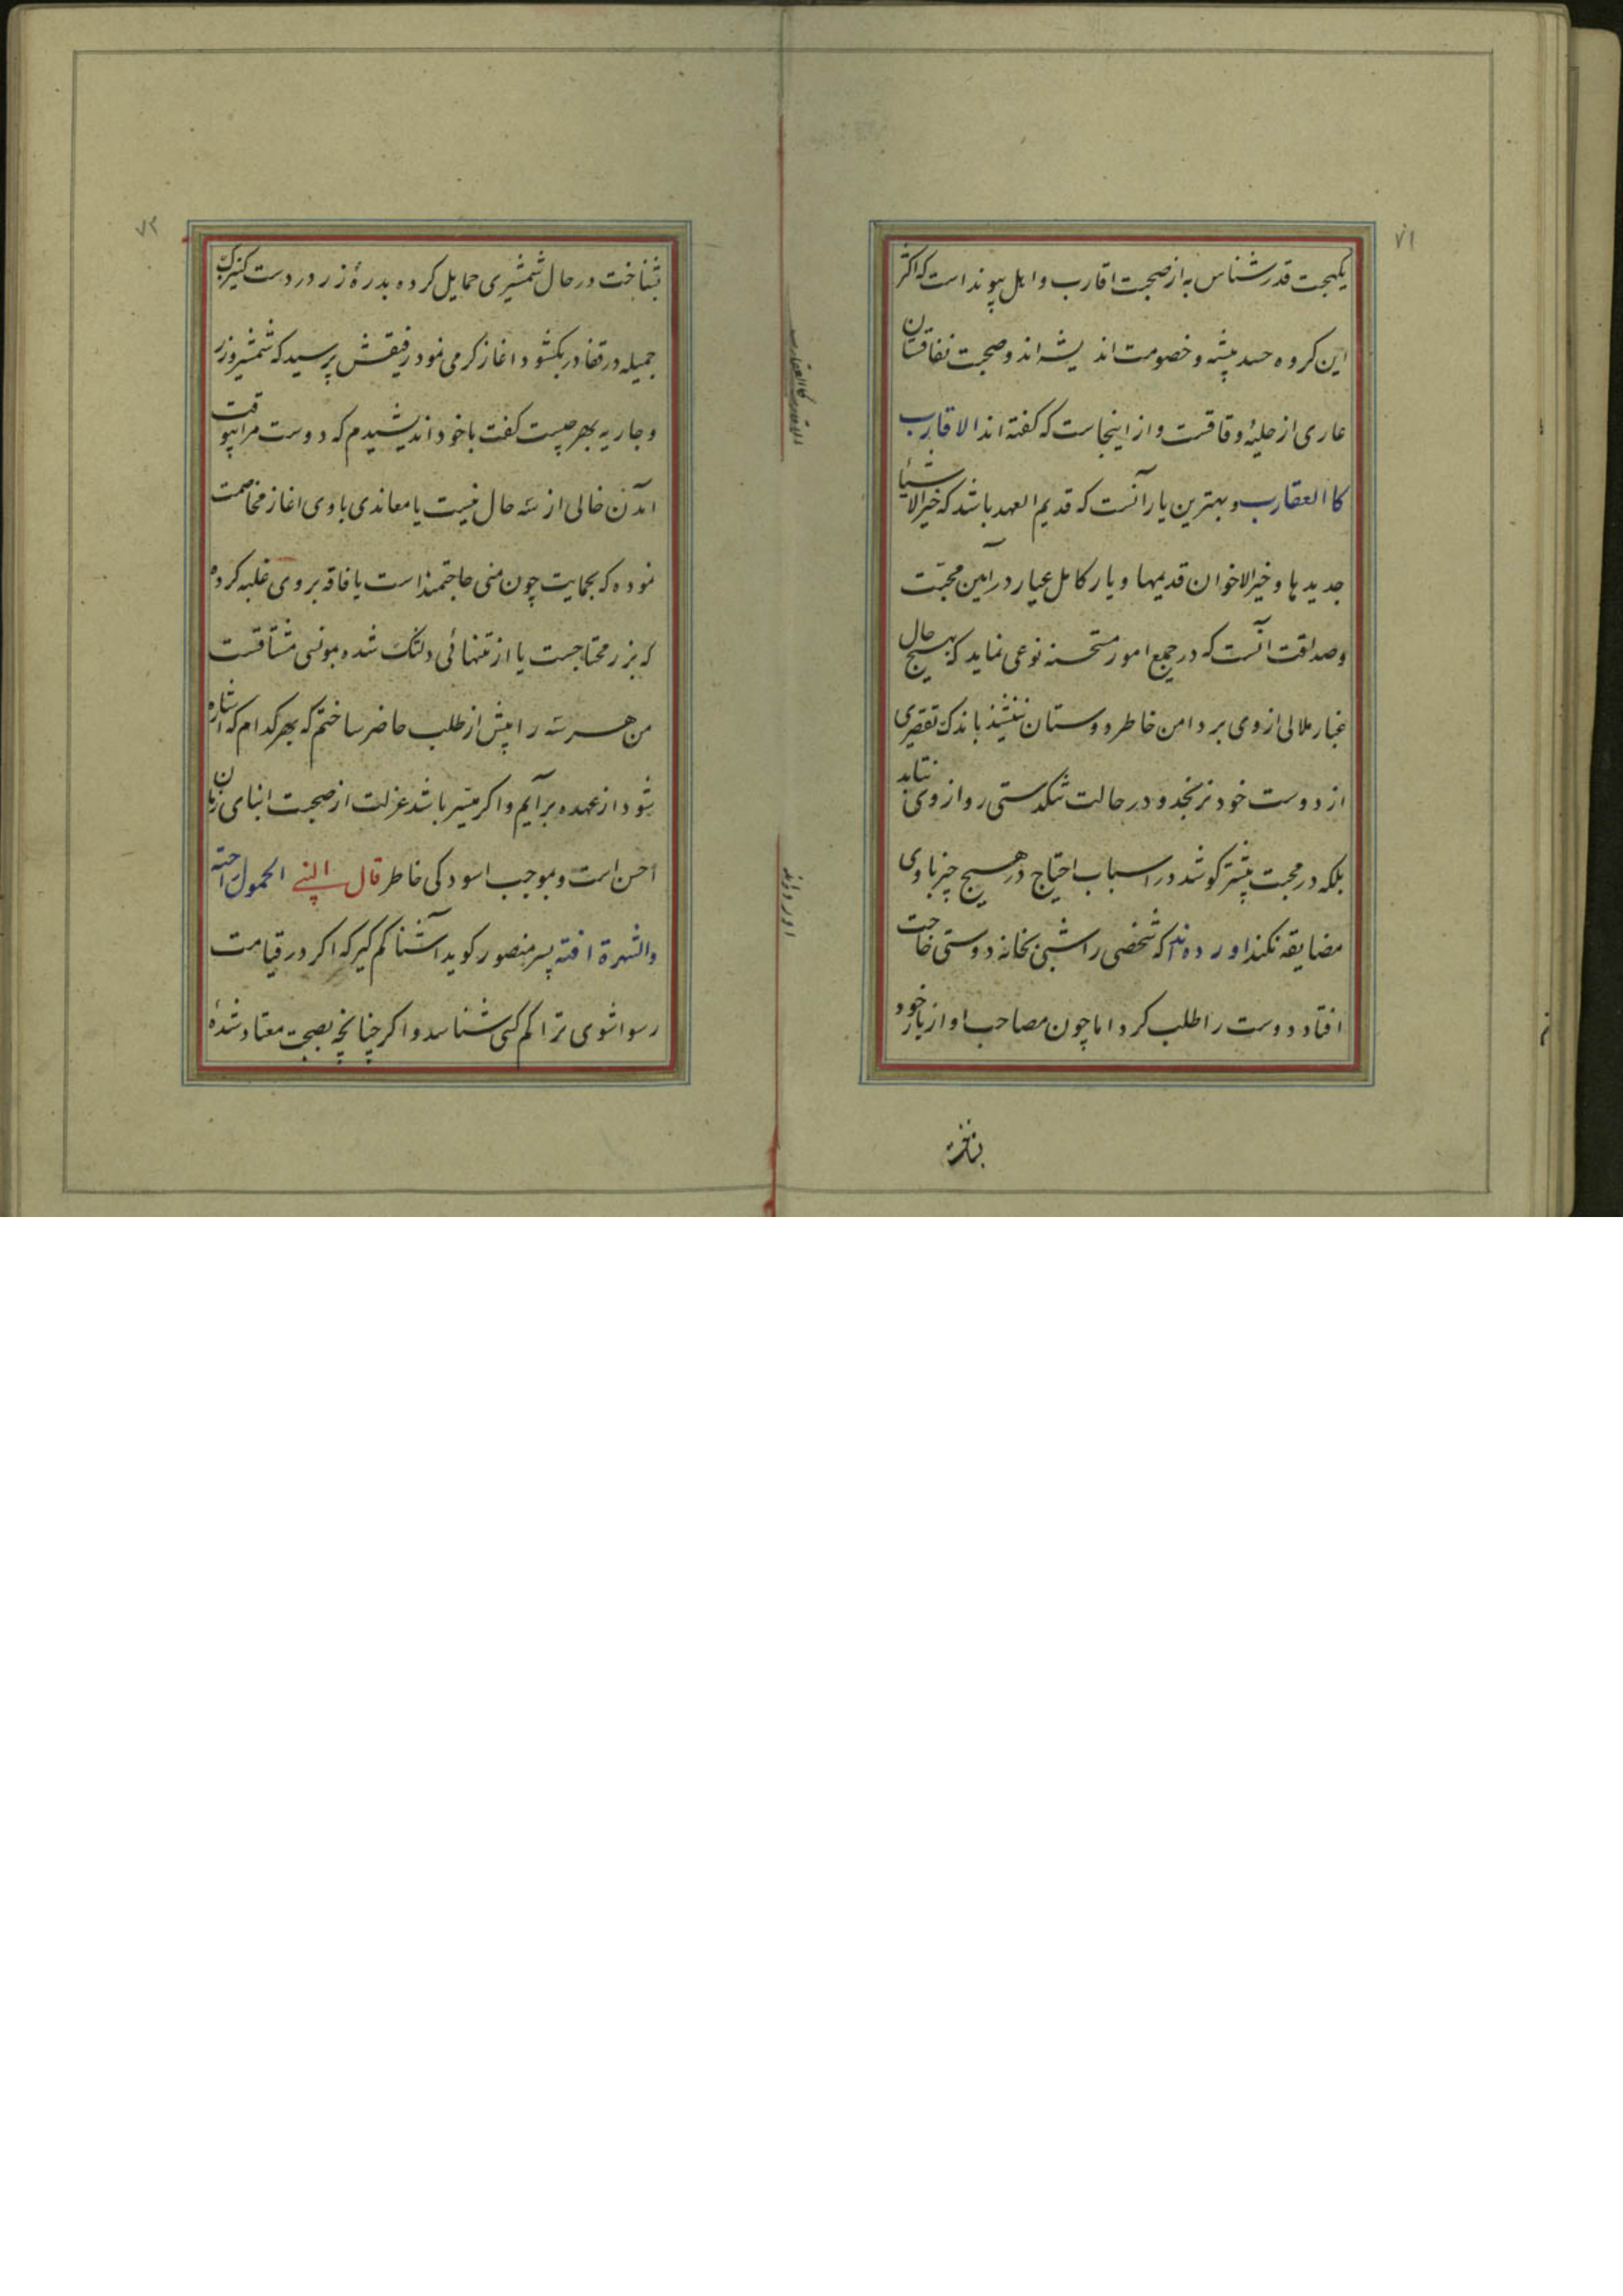 ۷۱
یکجهت قدرشناس به از صحبت اقارب و اهل پیوند است که اکثر
این کروه حسد پیشه و خصومت اندیشه اند و صحبت نفاقشان
عاری از حلیهٔ وفاقست و از اینجاست که کفته اند الاقارب
کاالعقارب و بهترین یار آنست که قدیم العهد باشد که خیر الاشیا
جدیدها و خیر الاخوان قدیمها و یار کامل عیار در آیین محبّت
و صداقت آنست که در جمیع امور مستحسنه نوعی نماید که بهیچ حال
غبار ملالی از وی بر دامن خاطر دوستان ننشیند باندک تقصیری
از دوست خود نرنجد و در حالت تنکدستی رو از وی نتابد
بلکه در محبت بیشتر کوشد در اسباب احتیاج در هیچ چیز با وی
مضایقه نکند اورده اند که شخصی را شبی بخانه دوستی حاجت
افتاد دوست را طلب کرد اما چون مصاحب اواز یار خود
الاقارب کالعقارب
اورده اند
۷۲
بشناخت در حال شمشیری حمایل کرده بدرهٔ زر در دست کنیزک
جمیله در قفا در بکشود اغاز کرمی نمود رفیقش پرسید که شمشیر و زر
و جاریه بهر چیست کفت با خود اندیشیدم که دوست مرا بیوقت
آمدن خالی از سه حال نیست یا معاندی با وی اغاز مخاصمت
نموده که بحمایت چون منی حاجتمند است یا فاقه بر وی غلبه کرده
که بزر محتاجست یا از تنهائی دلتنک شده بمونسی مشتاقست
من هر سه را پیش از طلب حاضر ساختم که بهر کدام که اشاره
شود از عهده بر آیم و اکر میسّر باشد عزلت از صحبت ابنای زمان
احسن است و موجب اسودکی خاطر قال النبی الخمول راحته
والشهرة افته پسر منصور کوید آشنا کم کیر که اکر در قیامت
رسوا شوی ترا کم کسی شناسد و اکر چنانچه بصحبت معتاد شدهٔ